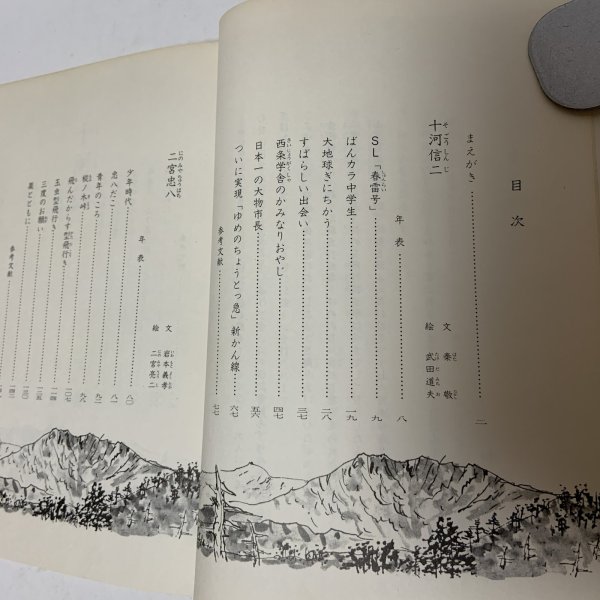 目次
まえがき 二
十河信二 文 秦敬
絵 武田道夫
年表 八
SL「春雷号」 九
ばんカラ中学生 一九
大地球ぎにちかう 二八
すばらしい出会い 三七
西条学舎のかみなりおやじ 四七
日本一の大物市長 五六
ついに実現「ゆめのちょうとっ急」新かん線 六七
参考文献 七七
二宮忠八 文 岩本義孝
絵 二宮亮二
年表
少年時代 八〇
忠八だこ 八一
青年のころ 九二
樅ノ木峠 九八
飛んだからす型飛行き 一〇七
玉虫型飛行き 一一四
三度のお願い
薬とともに
参考文献